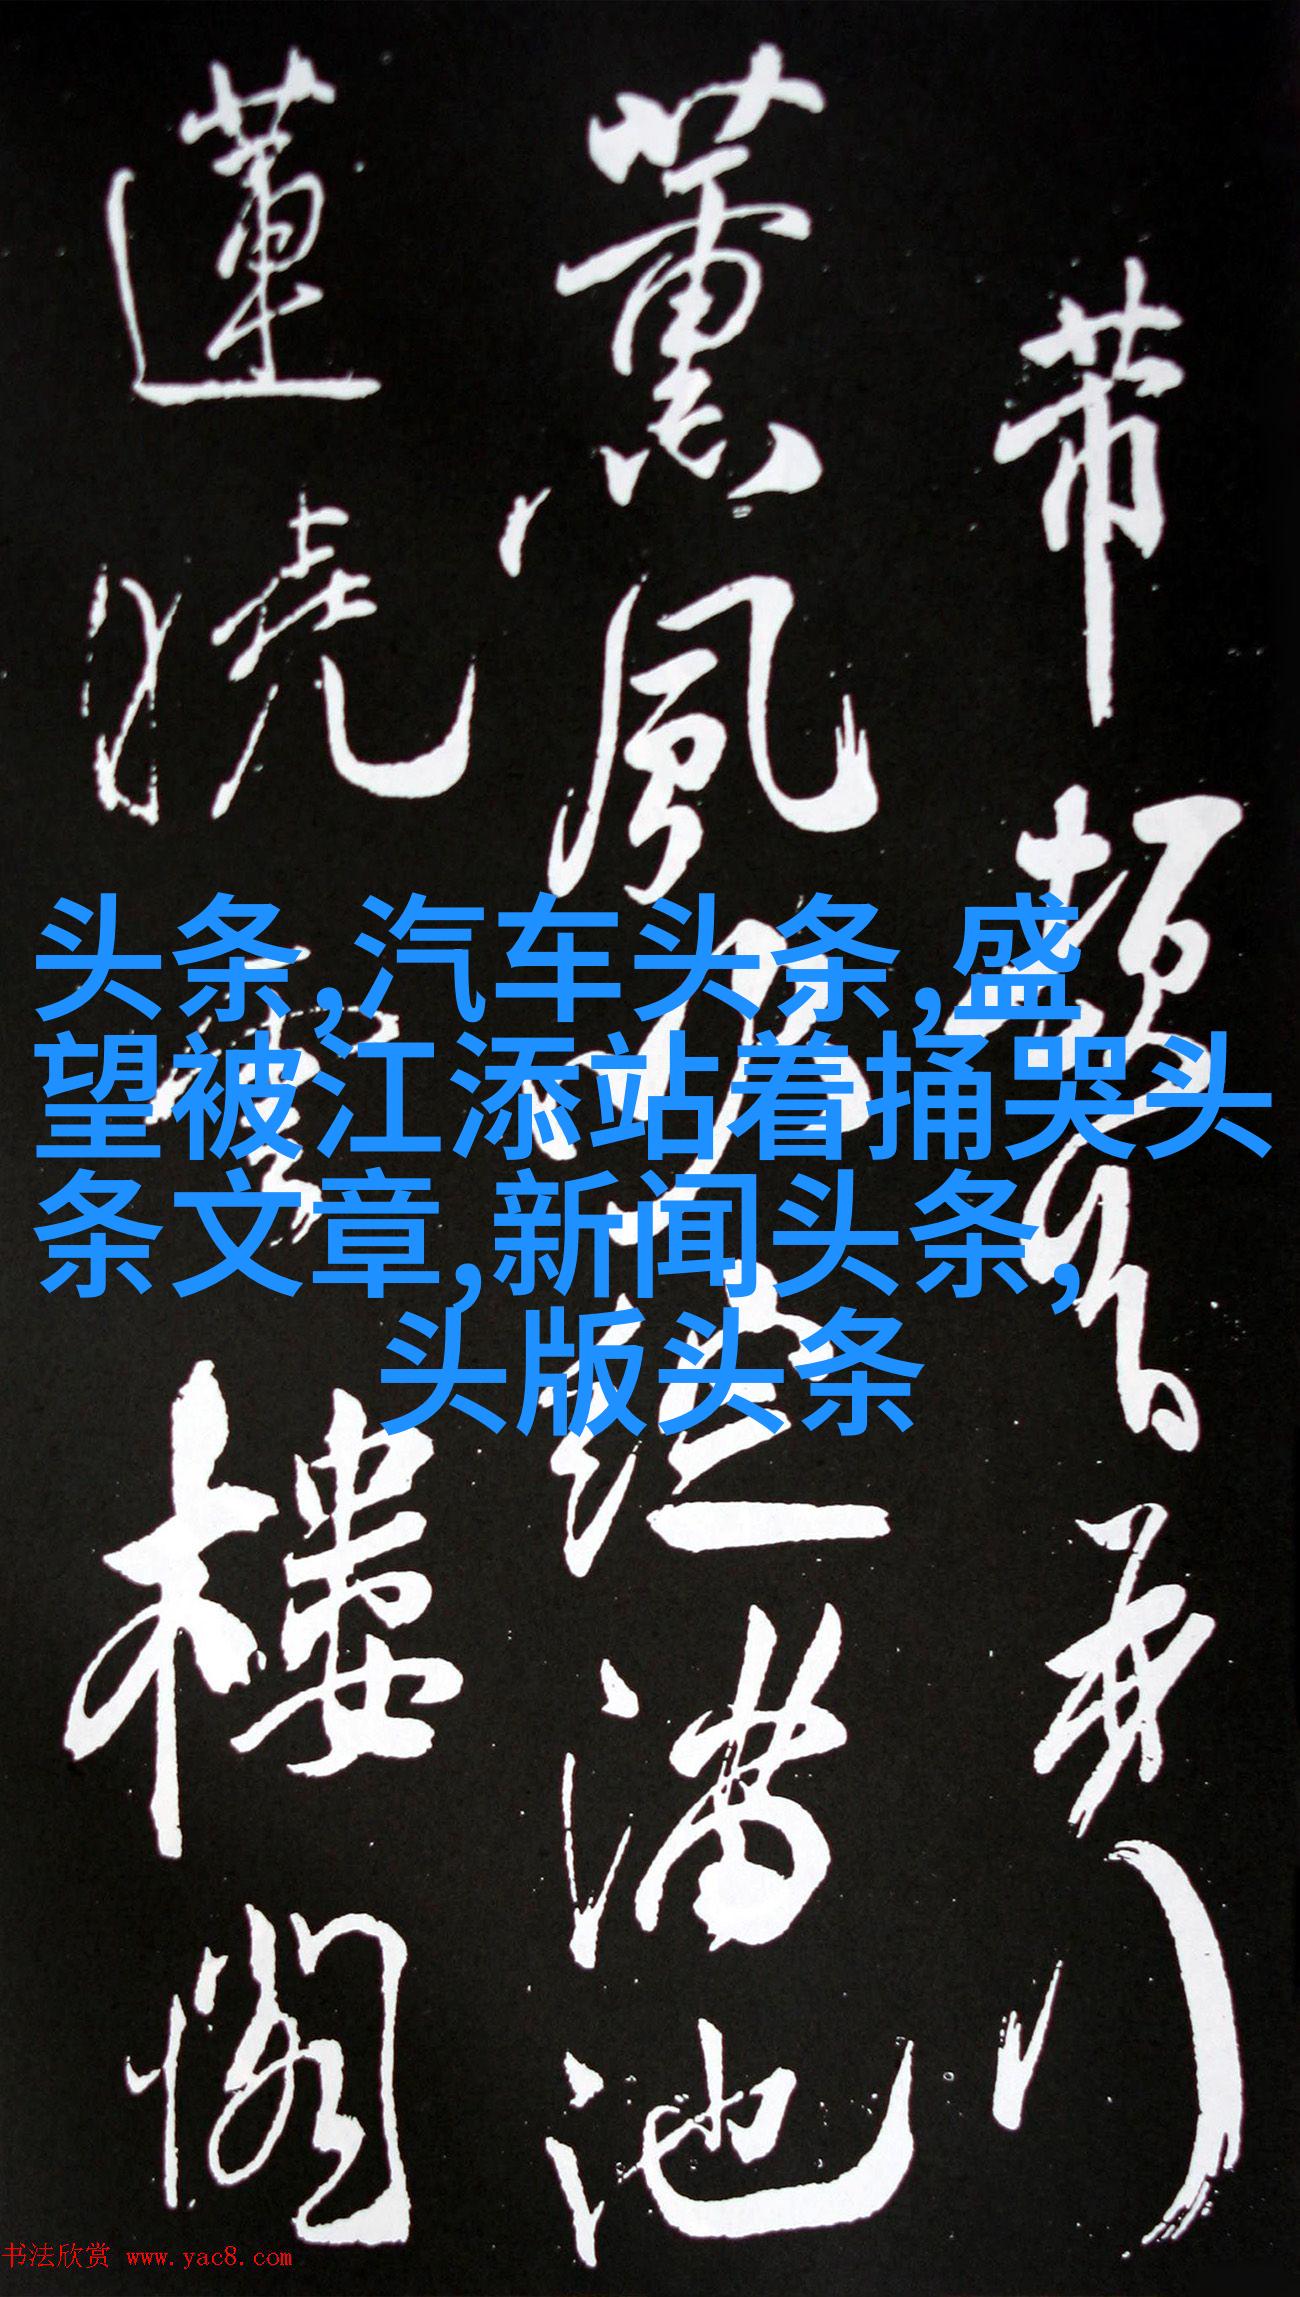 薰風吹綻滿池
蓮繞樓閣
头条,汽车头条,盛
望被江添站着捅哭头
条文章,新闻头条,
头版头条
书法欣赏 www.yac8.com